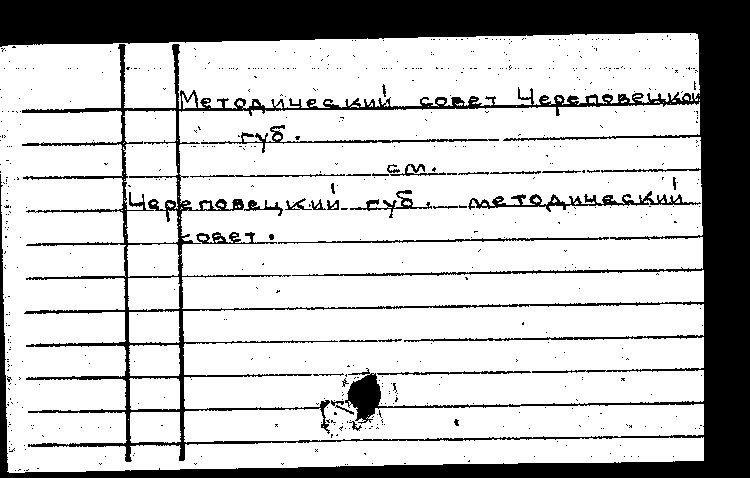 Методический совет Череповецкой
губ.
см.
Череповецкий губ. методический
совет.